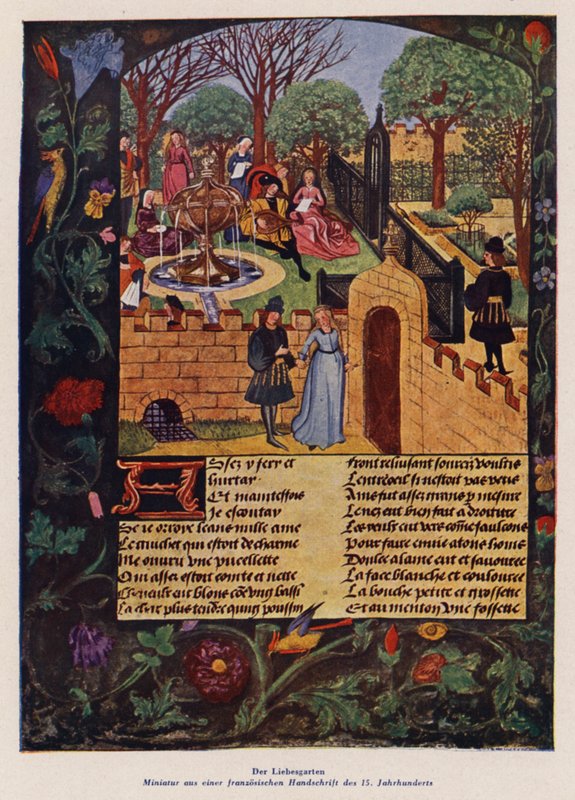 Assez y fery et
hurtay
Et maintesfois
Je escoutay
Se ie orroye leans nulle ame
Le guichet qui estoit de charme
Me ouury vne pucellette
Qui assez estoit cointe et nette
Cheueulx eut blons cõe vng bassĩ
La cher plus tendre qung poussin
Front reluisant sourcilz voultis
Lentroeil si nestoit pas petis
Ains fut assez grans p mesure
Le nez eut bien fait a droiture
Les yeulx eut vers cõme faulcons
Pour faire enuie a tous homs
Doulce alaine eut et sauouree
La face blanche et coulouree
La bouche petite et grossette
Et au menton vne fossette
Der Liebesgarten
Miniatur aus einer französischen Handschrift des 15. Jahrhunderts